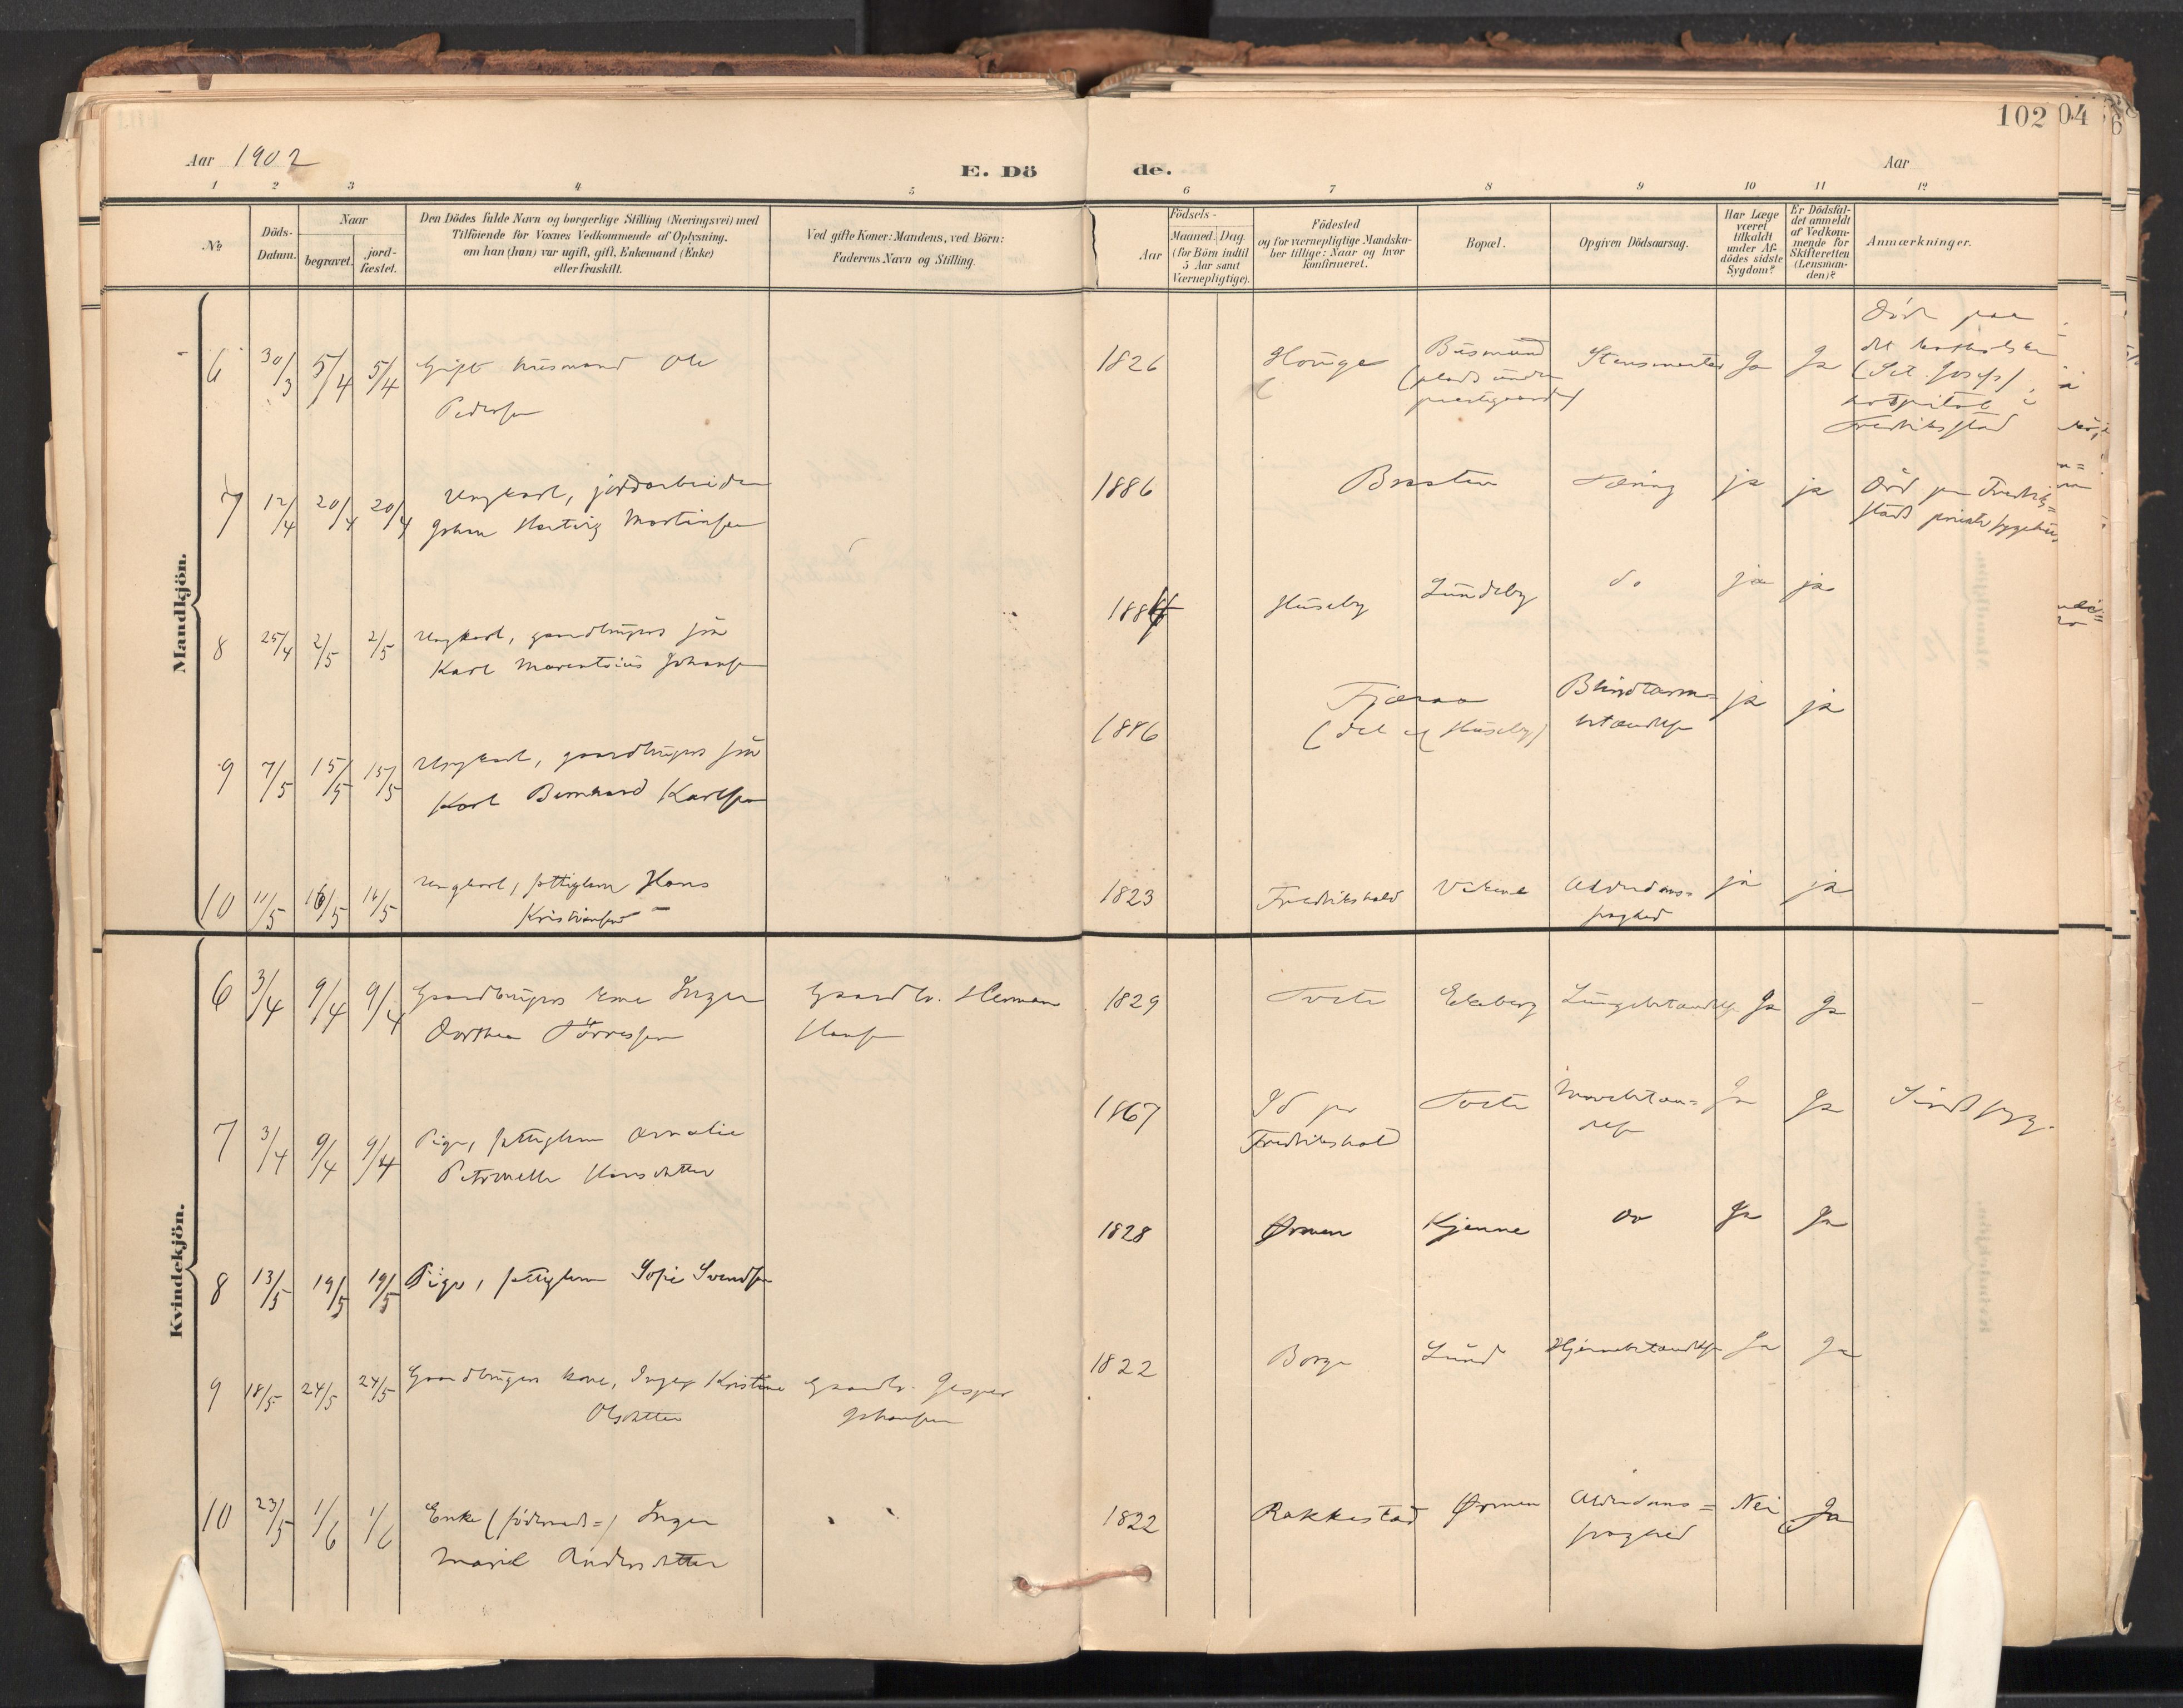 Aar 1902
E. Döde.
Aar
102
04
1 2 3 4 5 6 7 8 9 10 11 12
No
Döds-Datum.
Naar
begravet.
jord-fæstet.
Den Dödes fulde Navn og borgerlige Stilling (Næringsvei) med
Tilföiende for Voxnes Vedkommende af Oplysning.
om han (hun) var ugift, gift, Enkemand (Enke)
eller fraskilt.
Ved gifte Koner: Mandens, ved Börn:
Faderens Navn og Stilling.
Födsels-
Aar
Maaned. Dag.
(for Börn indtil
5 Aar samt
Værnepligtige).
Födested
og for værnepligtige Mandska-
ber tillige: Naar og hvor
konfirmeret.
Bopæl.
Opgiven Dödsaarsag.
Har Læge
været
tilkaldt
under Af-
dödes sidste
Sygdom?
Er Dödsfal-
det anmeldt
af Vedkom-
mende for
Skifteretten
(Lensman-
den)?
Anmærkninger.
Mandkjön.
6 30/3 5/4 5/4 Gift husmand Ole
Pedersen
1826 Hauge Busmund
(plads under
prestegaarden)
Ja Ja
Död paa
det katholske
(Sct. Josefs)
hospital i
Fredriksstad
7 12/4 20/4 20/4 Ungkarl, jordarbeider
Johan Hartvig Martinsen
1886 Braaten Tæring ja ja Död paa Fredrik=
stads private sygehus
8 25/4 2/5 2/5 Ungkarl, gaardbrugers sön
Karl Marentsius Johansen
1884 Huseby Lundeby do ja ja
9 7/5 15/5 15/5 Ungkarl, gaardbrugers sön
Karl Bernhard Karlsen
1886 Fjæraa
(del af Huseby)
Blindtarm=
betændelse
ja ja
10 11/5 16/5 16/5 Ungkarl, fattiglem Hans
Kristiansen
1823 Fredrikshald Vikene Alderdoms=
svaghed
ja ja
Kvindekjön.
6 3/4 9/4 9/4 Gaardbrugers kone Inger
Dorthea Törresen
Gaardbr. Herman
Hansen
1829 Tvete Ekeberg Lungebetændelse Ja Ja
7 3/4 9/4 9/4 Pige, fattiglem Amalie
Petronelle Hansdatter
1867 Id pr
Fredrikshald
Tvete
Ja Ja Sindssyg.
8 13/5 19/5 19/5 Pige, fattiglem Sofie Svendsen
1828 Ørmen Kjenne do Ja Ja
9 18/5 24/5 24/5 Gaardbrugers kone, Inger Kristine
Olsdatter
Gaardbr. Jesper
Johansen
1822 Borge Lund Hjernebetændelse Ja Ja
10 23/5 1/6 1/6 Enke (föderaads=) Inger
Marie Andersdatter
1822 Rakkestad Ørmen Alderdoms=
svaghed
Nei Ja